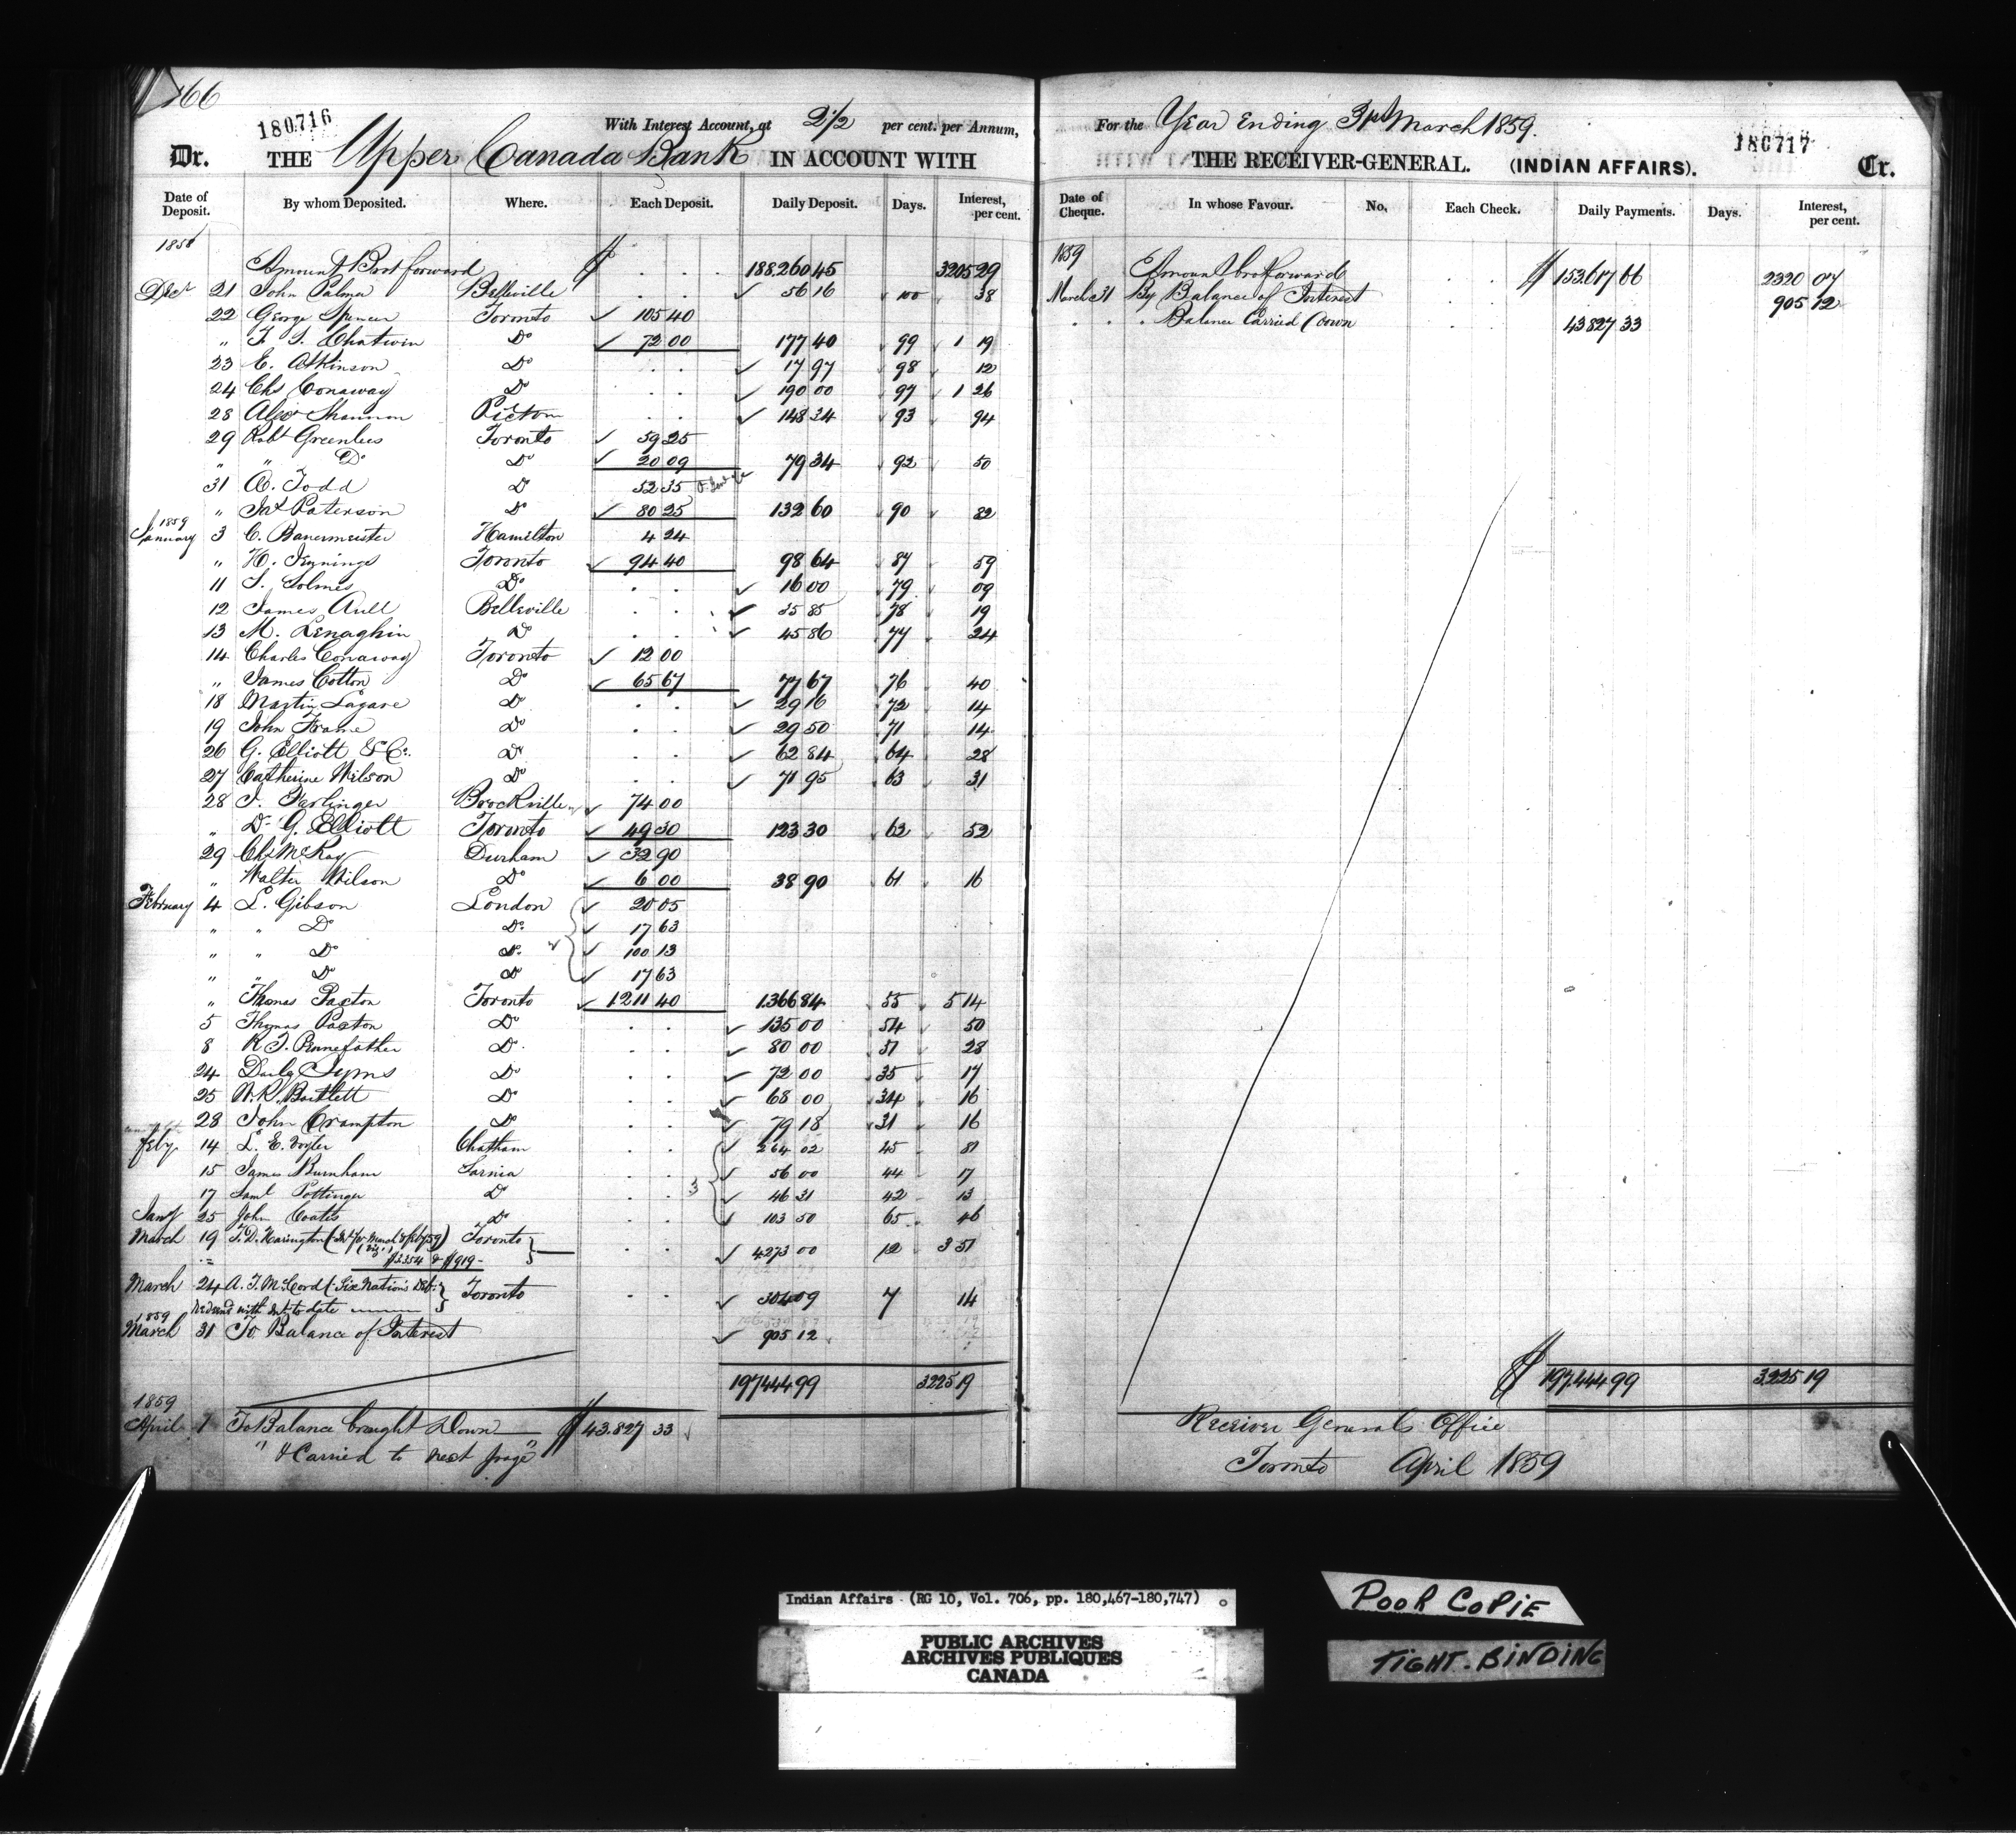 166
180716
With Interest Account, at 2½ per cent. per Annum,
Dr. THE Upper Canada Bank IN ACCOUNT WITH
Date of Deposit. By whom Deposited. Where. Each Deposit. Daily Deposit. Days. Interest, per cent.
1858
Amount Brot forward $ 188.260 45 3205 29
Decr 21 John Palmer Belleville 56 16 100 38
22 George Spencer Toronto 105 40
" T. S. Chatwin Do 72 00 177 40 99 1 19
23 E. Atkinson Do 17 97 98 12
24 Chs Conaway Do 190 00 97 1 26
28 Alexr Shannon Picton 148 34 93 94
29 Robt Greenlees Toronto 59 25
" " Do Do 20 09 79 34 92 50
31 A. Todd Do 52 35
" Jas Paterson Do 80 25 132 60 90 82
1859
January 3 C. Bauermeister Hamilton 4 24
" H. Jennings Toronto 94 40 98 64 87 59
11 S. Solmes Do 16 00 79 09
12 James Aull Belleville 35 85 78 19
13 M. Lenaghin Do 45 86 77 24
14 Charles Conaway Toronto 12 00
" James Cotton Do 65 67 77 67 76 40
18 Martin Lagare Do 29 16 72 14
19 John Frame Do 29 50 71 14
26 G. Elliott & Co. Do 62 84 64 28
27 Catherine Wilson Do 71 95 63 31
28 I. Farlinger Brockville 74 00
" Dr G. Elliott Toronto 49 30 123 30 62 52
29 Chs McKay Durham 32 90
" Walter Wilson Do 6 00 38 90 61 16
February 4 L. Gibson London 20 05
" " Do Do 17 63
" " Do Do 100 13
" " Do Do 17 63
" Thomas Paxton Toronto 1.211 40 1.366 84 55 5 14
5 Thomas Paxton Do 135 00 54 50
8 R. T. Pennefather Do 80 00 51 28
24 Daily Tyms Do 72 00 35 17
25 W. R. Bartlett Do 68 00 34 16
28 John Crampton Do 79 18 31 16
Feby 14 L. E. Chatham 264 02 45 81
15 James Burnham Sarnia 56 00 44 17
17 Saml Pottinger Do 3 46 31 42 13
Jany 25 John Coates Do 103 50 65 46
March 19 T. D. Harington (Int. for March & Feby 59) Toronto
(Viz) $3354 & $919 - 4273 00 12 3 51
March 24 A. T. McCord (Six Nations Deb. Toronto
Redeemd with Int. to date 304 09 7 14
1859
March 31 To Balance of Interest 905 12
197.444 99 3225 19
1859
April 1 To Balance brought Down $ 43.827 33
" & Carried to next page "
For the Year Ending 31st March 1859.
180717
THE RECEIVER-GENERAL. (INDIAN AFFAIRS). Cr.
Date of Cheque. In whose Favour. No. Each Check. Daily Payments. Days. Interest, per cent.
1859
Amount brot forward $ 153.617 66 2320 07
March 31 By Balance of Interest 905 12
Balance Carried Down 43827 33
$ 197.444 99 3.225 19
Receiver Generals Office
Toronto April 1859
Indian Affairs (RG 10, Vol. 706, pp. 180,467-180,747)
PUBLIC ARCHIVES
ARCHIVES PUBLIQUES
CANADA
POOR COPIE
TIGHT. BINDING